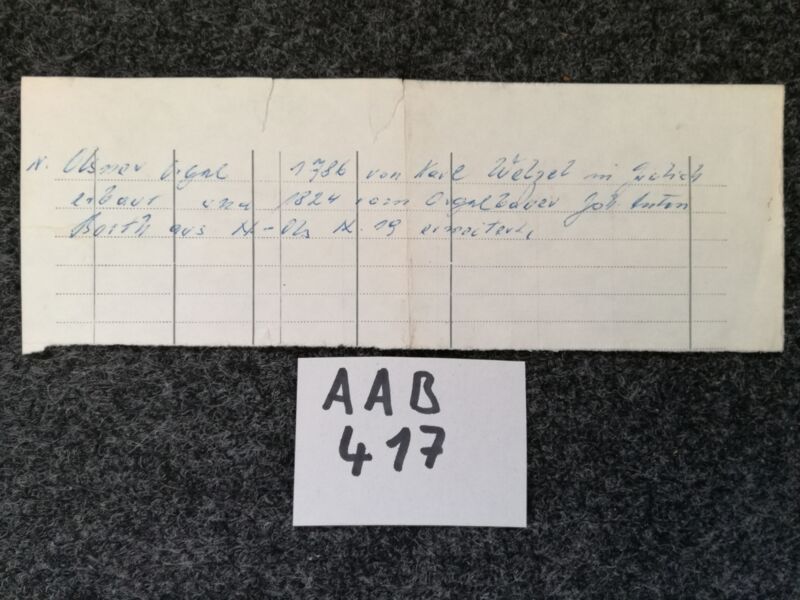 N. Olsner Orgel 1786 von Karl Welzel in Grulich
erbaut und 1824 vom Orgelbauer Joh. Anton
Barth aus N-Ols N. 19 erweitert,
AAB
417